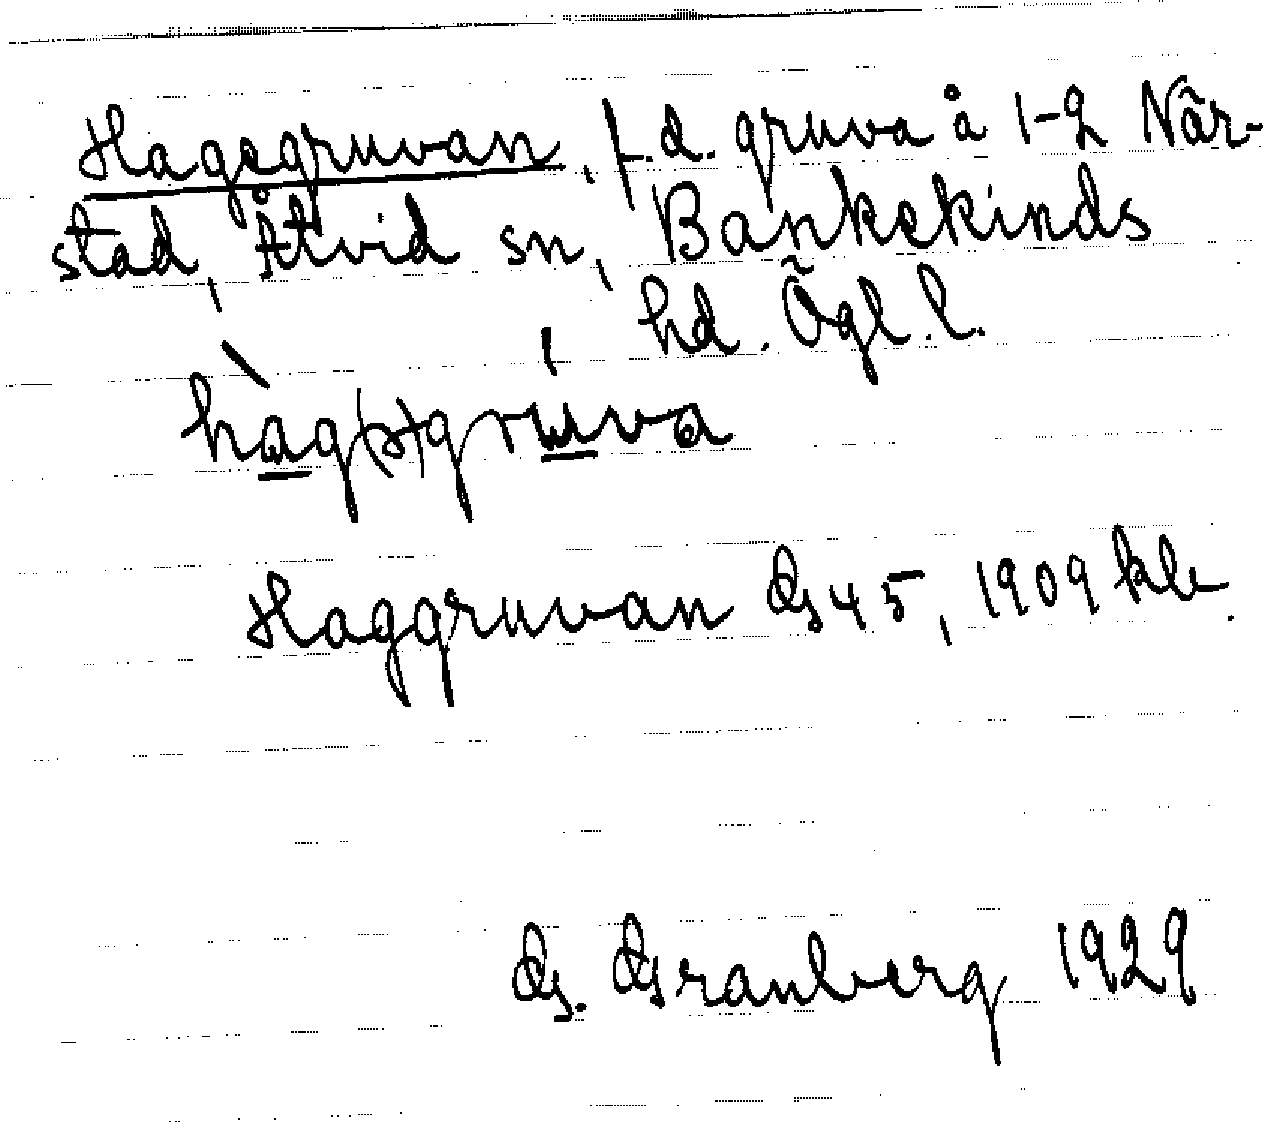 Hagsgruvan, f.d. gruva å 1-2 När-
stad, Åtvid sn, Bankekinds
hd. Ögl. l.
hàg(s)grúva
Haggruvan Gs 45, 1909 kle.
G. Granberg 1929